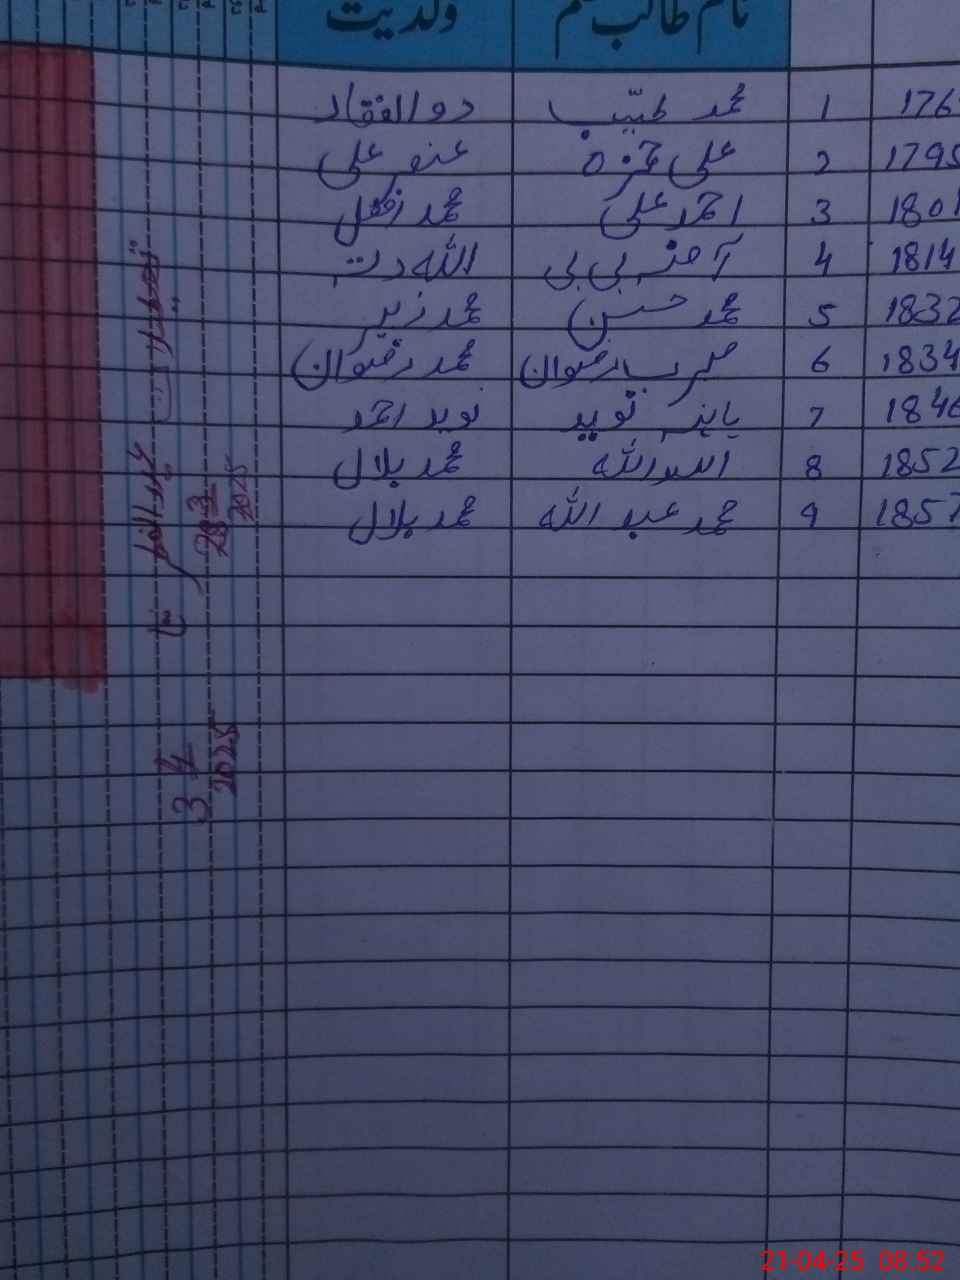 نام طالب علم ولدیت
176 1 محمد طیّب ذوالفقار
1795 2 علی حمزہ غضنفر علی
1801 3 احمد علی محمد افضل
1814 4 آمنہ بی بی اللہ دتہ
1832 5 محمد حسن محمد زبیر
1834 6 رضوان محمد رضوان
1846 7 نوید نوید احمد
1852 8 اسداللہ محمد بلال
1857 9 محمد عبداللہ محمد بلال
تعطیلات عیدالفطر
28 3 2025
تا
3 4 2025
21-04-25 08.52